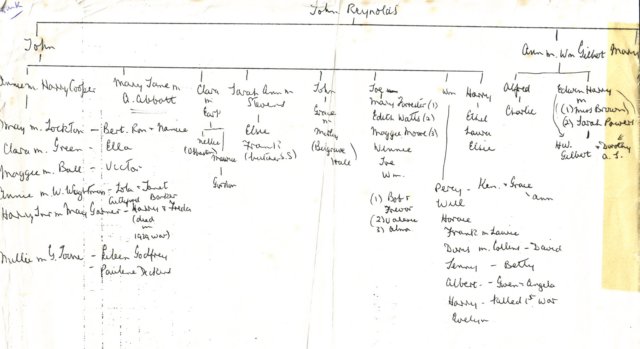 John Reynolds
John
Ann m. Wm Gilbert
Mary
m. Harry Cooper
Mary Jane m
A. Abbott
Clara
m
East
Nellie
Maurice
Gordon
Sarah Ann m
Stevens
Elsie
Frank
John
m
(Belgrave
Hall)
Joe
Mary Forrester (1)
Edith Watts (2)
Maggie Moore (3)
Winnie
Joe
Wm.
(1) Bob &
Trevor
(2) Valerie
3) Alma
Wm
Harry
Ethel
Laura
Elsie
Alfred
Charlie
Edwin Harry
m
(1) (Miss Brown)
(2) Sarah Powers
H.W.
Gilbert
Dorothy
a. S.
May m. Lockton - Bert. Ron = Nancie
Clara m. Green - Ella
Maggie m. Ball - Victor
Annie m. W. Wightman - Lola - Janet
Harry Jnr m May Garner - Harry & Freda
(died
in
1939 war)
Millie m G. Toone - Eileen Godfrey
- Pauline
Percy - Ken. - Grace
Ann
Will
Horace
Frank m Laurie
Doris m. Collins - David
Jenny - Betty
Albert - Gwen - Angela
Harry - killed 1st war
Evelyn